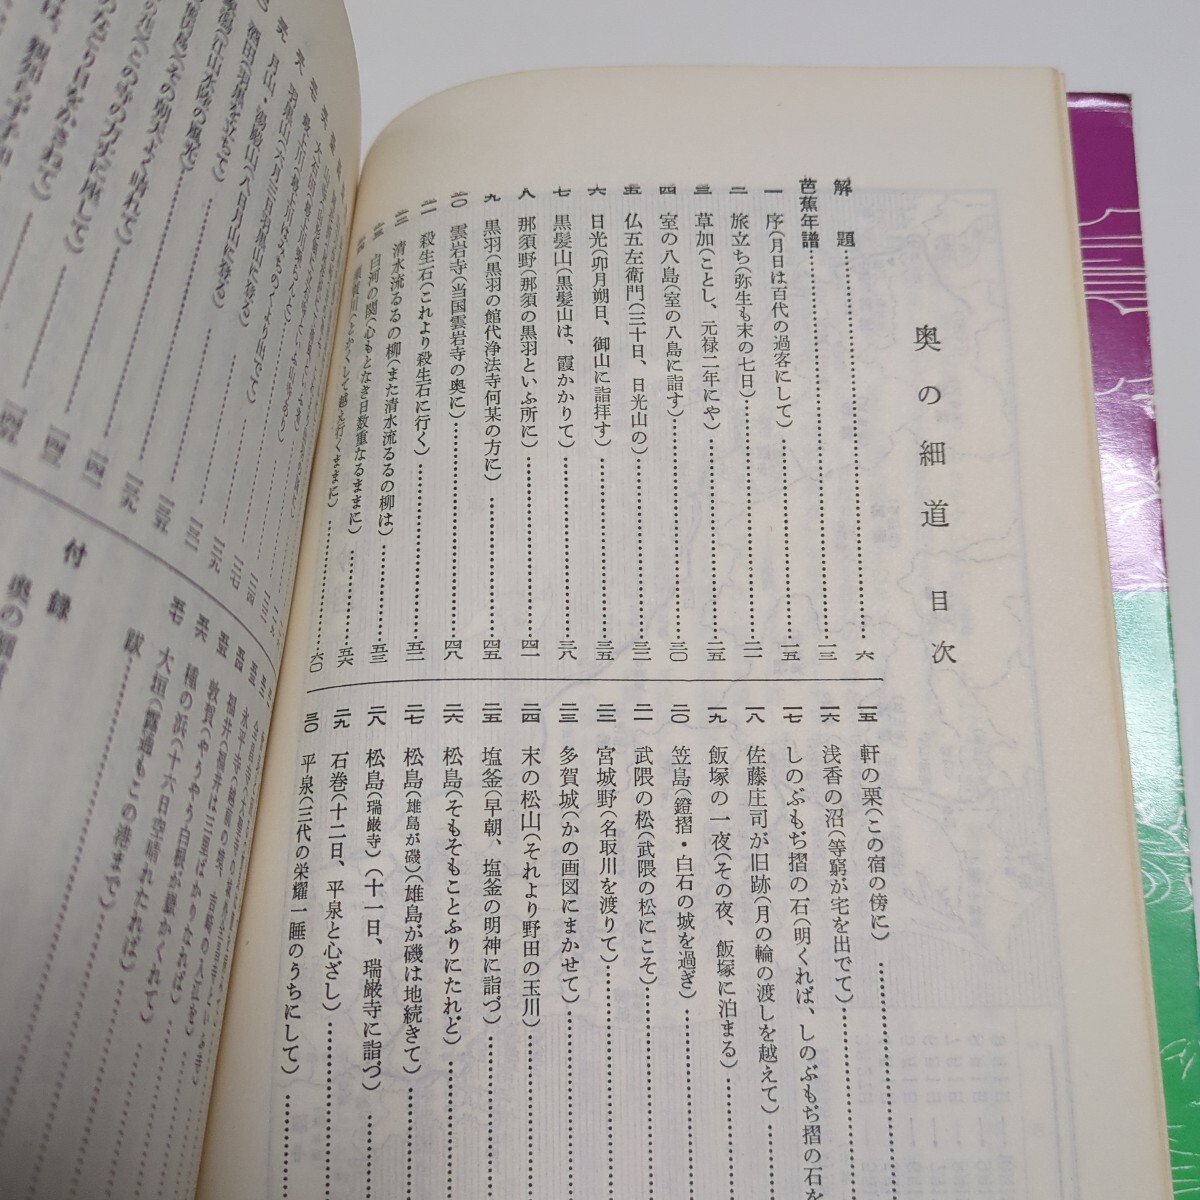 奥の細道 目次
解題……六
芭蕉年譜……一三
一 序(月日は百代の過客にして)……一五
二 旅立ち(弥生も末の七日)……二一
三 草加(ことし、元禄二年にや)……二五
四 室の八島(室の八島に詣す)……三〇
五 仏五左衛門(三十日、日光山の)……三二
六 日光(卯月朔日、御山に詣拝す)……三五
七 黒髪山(黒髪山は、霞かかりて)……三八
八 那須野(那須の黒羽といふ所に)……四一
九 黒羽(黒羽の館代浄法寺何某の方に)……四五
一〇 雲岩寺(当国雲岩寺の奥に)……四八
一一 殺生石(これより殺生石に行く)……五二
一二 清水流るるの柳(また清水流るるの柳は)……五三
一三 白河の関(心もとなき日数重なるままに)……五六
(とかくして越え行くままに)……六〇
一五 軒の栗(この宿の傍に)……
一六 浅香の沼(等窮が宅を出でて)……
一七 しのぶもぢ摺の石(明くれば、しのぶもぢ摺の石を
一八 佐藤庄司が旧跡(月の輪の渡しを越えて)……
一九 飯塚の一夜(その夜、飯塚に泊まる)……
二〇 笠島(鐙摺・白石の城を過ぎ)……
二一 武隈の松(武隈の松にこそ)……
二二 宮城野(名取川を渡りて)……
二三 多賀城(かの画図にまかせて)……
二四 末の松山(それより野田の玉川)……
二五 塩釜(早朝、塩釜の明神に詣づ)……
二六 松島(そもそもことふりにたれど)……
二七 松島(雄島が磯)(雄島が磯は地続きて)……
二八 松島(瑞巌寺)(十一日、瑞巌寺に詣づ)……
二九 石巻(十二日、平泉と心ざし)……
三〇 平泉(三代の栄耀一睡のうちにして)……
羽黒山(六月三日羽黒山に登る)
月山・湯殿山(八日月山に登る)
酒田(羽黒を立ちて)
(江山水陸の風光)
(その朝天よく晴れて)
敦賀(やうやう白根が嶽かくれて)
五五 種の浜(十六日空晴れたれば)
大垣(露通もこの港まで)
跋……
付録
奥の細